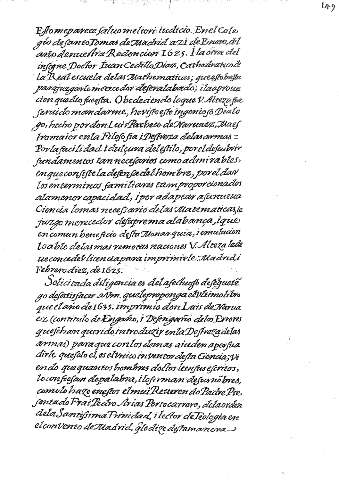 149
Esto me parece salvo meliori iudicio. En el Cole
gio de Santo Tomas de Madrid a 21 de Enero, del
año de nuestra Redencion 1625. I la otra del
insigne Doctor Iuan Cedillo Diaz, Cathedratico de
la Real escuela de las Mathematicas; que esto basta
para juzgarlo merecedor de ser alabado; i la aprova
cion que dio fue esta. Obedeciendo lo que V. Alteza fue
servido mandarme, he visto este ingenioso Dialo
go, hecho por don Luis Pacheco de Narvaez, Maes
tro maior en la Filosofia i Destreza de las armas:
Por la facilidad i dulçura del estilo, por el descubrir
fundamentos tan necesarios como admirables
en que consiste la defensa del hombre, por el dar
los en terminos familiares i tan proporcionados
a la menor capacidad, i por adaptar a su nueva
Ciencia lo mas necessario de las Matematicas, le
juzgo merecedor de suprema alabança, i que es
en comun beneficio desta Monarquia, i emulacion
loable de las mas remotas naciones V. Alteza le de
ve conceder licencia para imprimirle. Madrid, i
Febrero diez, de 1625.
Solicitada diligencia es del afecto que
go de satisfacer a Vm. que le proponga el ultimo libro
que el año de 1635. imprimio don Luis de Narva
ez, (con titulo de Engaño, i Desengaño de los Errores
que se han querido introduzir en la Destreza de las
armas) para que con los demas aiuden a persua
dirle, que solo el, es el unico inventor desta Ciencia; Vi
endo que quantos hombres doctos leen sus escritos,
lo confiesan de palabra, i lo firman de sus nõbres,
como lo haze en este el mui Reverendo Padre Pre
sentado Frai Pedro Arias Portocarrero, de la orden
de la Santissima Trinidad, i lector de Teologia en
el convento de Madrid, q̃ lo dize desta manera.